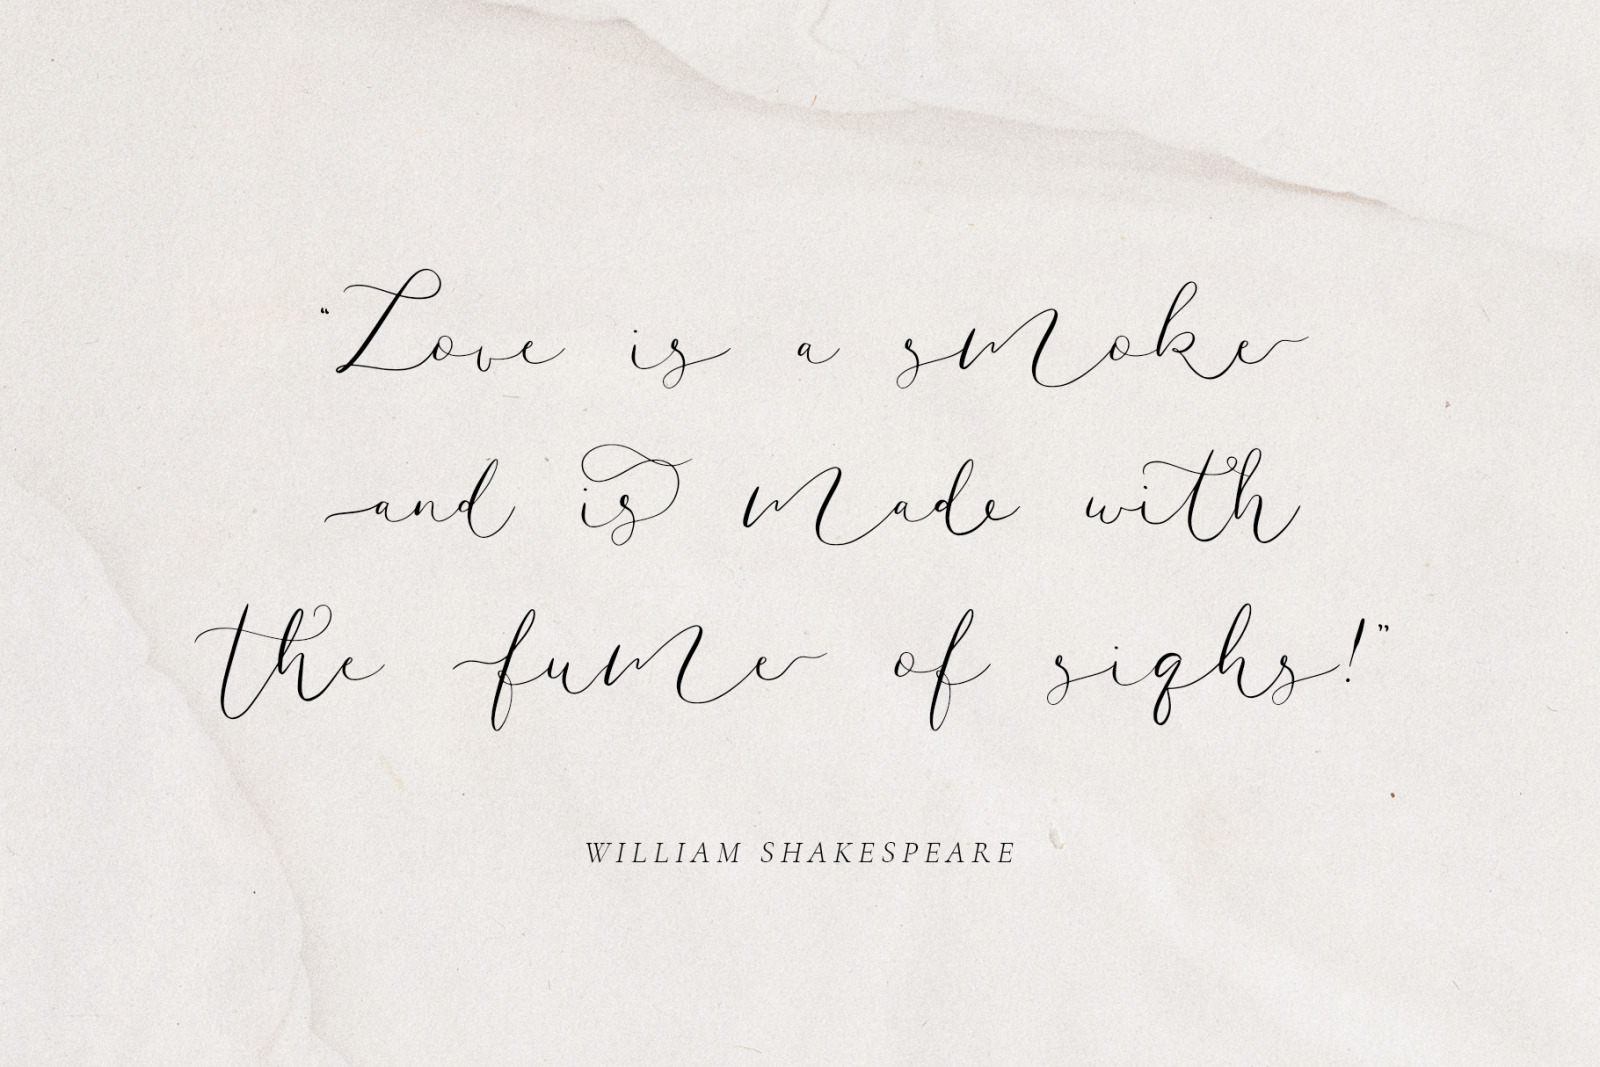 “Love is a smoke
and is made with
the fume of sighs!”
WILLIAM SHAKESPEARE